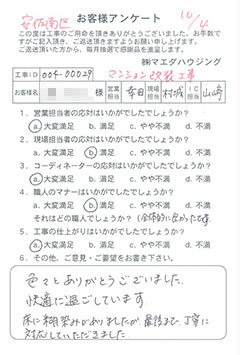 安佐南区
お客様アンケート
10/4
この度は工事のご用命を頂きありがとうございました。お手数で
すがご記入頂き、ご返送頂きますようお願い申し上げます。
ご返送頂いた方から、毎月抽選で感謝品を進呈します。
㈱マエダハウジング
工事ID 004-00029 マンション改装工事
お客様名 様 営業担当 幸田 現場担当 村城 IC担当 山崎
1．営業担当者の応対はいかがでしたでしょうか？
a. 大変満足 b. 満足 c. やや不満 d. 不満
2．現場担当者の応対はいかがでしたでしょうか？
a. 大変満足 b. 満足 c. やや不満 d. 不満
3．コーディネーターの応対はいかがでしたでしょうか？
a. 大変満足 b. 満足 c. やや不満 d. 不満
4．職人のマナーはいかがでしたでしょうか？
a. 大変満足 b. 満足 c. やや不満 d. 不満
それはどの職人でしょうか？（全体的に良かったです）
5．工事の仕上がりはいかがでしたでしょうか？
a. 大変満足 b. 満足 c. やや不満 d. 不満
6．その他、ご意見・ご要望をお書き下さい。
色々とありがとうございました。
快適に過ごしています。
床に糊染みがありましたが、最後まで丁寧に
対応していただきました。